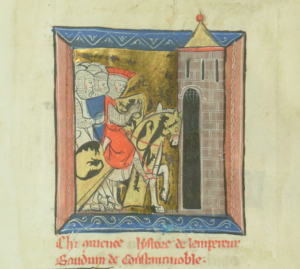 Chi commence lystore de lempereur
Bauduin de constantinoble.